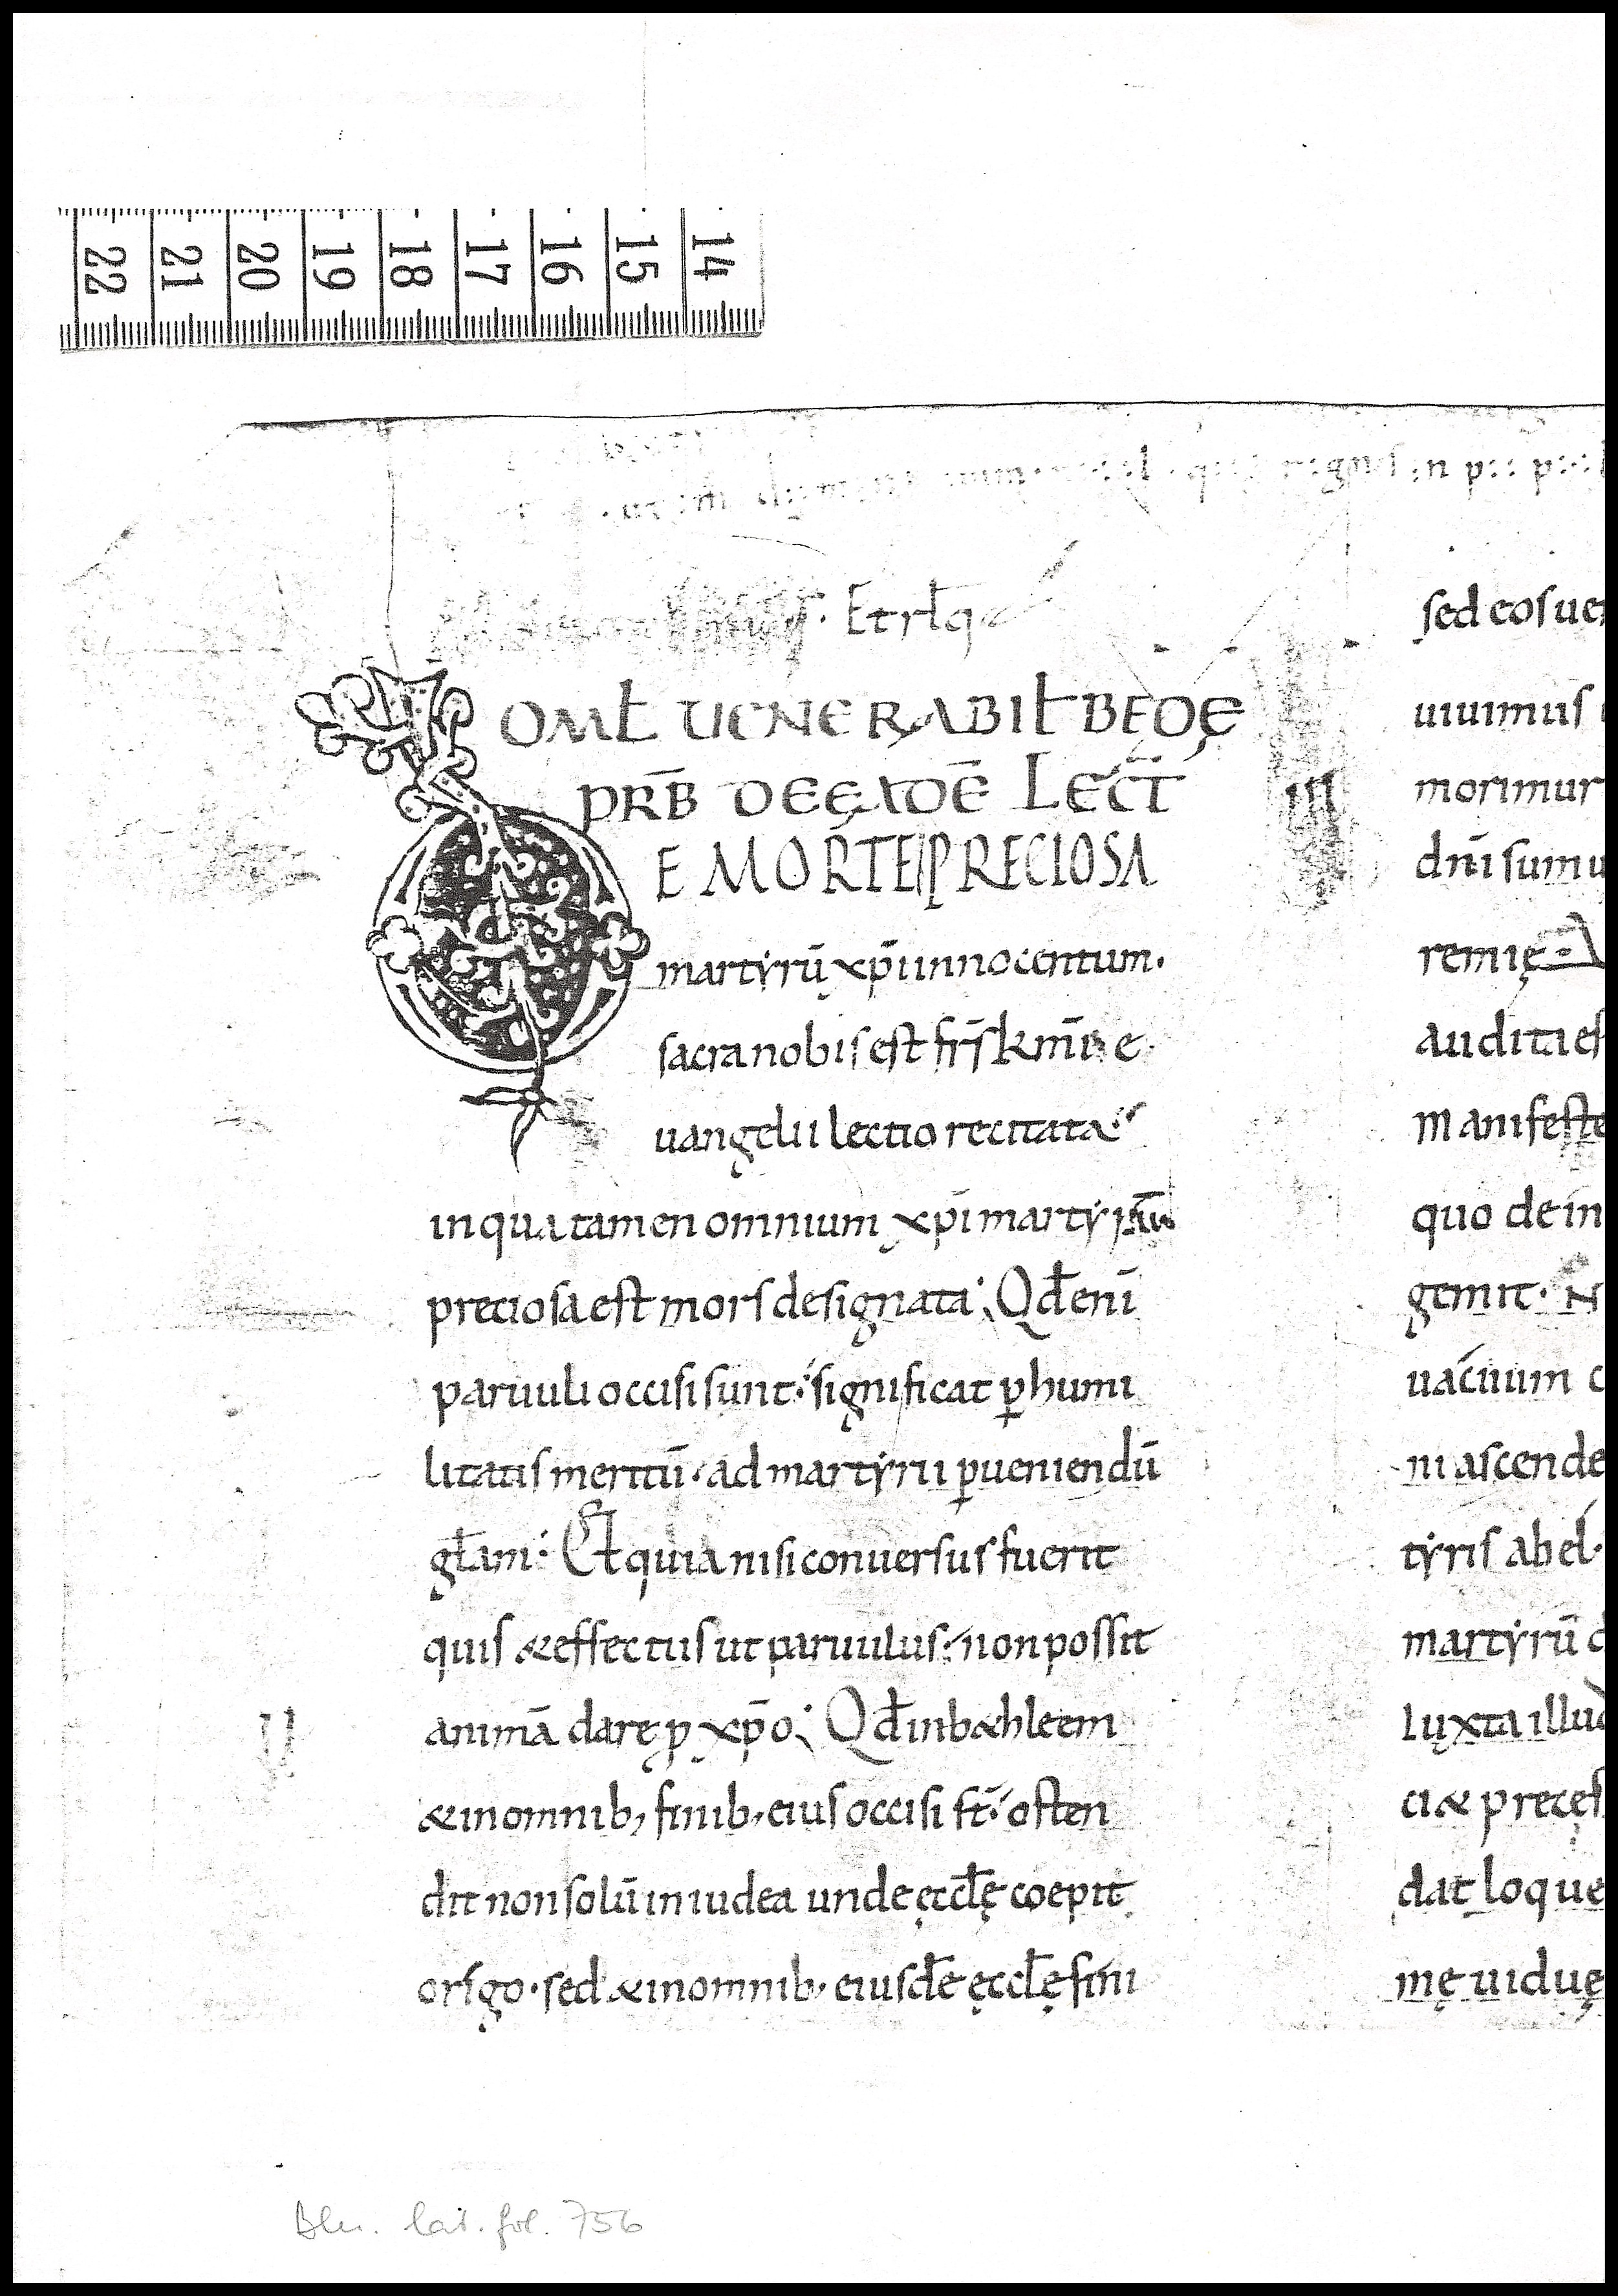 22 21 20 19 18 17 16 15 14
Et rƚq
OMƚ UENERABIƚ BEDĘ
PRB̄ DE EADĒ LECT̄
DE MORTE PRECIOSA
martyrū xp̄i innocentum·
sacra nobis est fr̄s km̄i e
uangelii lectio recitata
in qua tamen omnium xp̄i martyrū
preciosa est mors designata; Qd̄ enī
paruuli occisi sunt; significat ꝑ humi
litatis meritū· ad martyrii ꝑueniendū
gƚam; Et quia nisi conuersus fuerit
quis & effectus ut paruulus; non possit
animā dare p xp̄o; Qd̄ in b&hleem
& in omnib; finib; eius occisi st̄; osten
dit non solū in iudea unde ęccƚę coepit
origo· sed & in omnib; eiusdē ęccƚę fini
sed eos ue
uiuimus
morimur
dn̄i sumu
remię· A
auditi es
manifeste
quo dein
gemit· N
uacuum c
ni ascende
tyris abel·
martyrū d
Iuxta illud
ci & preces
dat loque
mę uiduę
Bln. lat. fol. 756